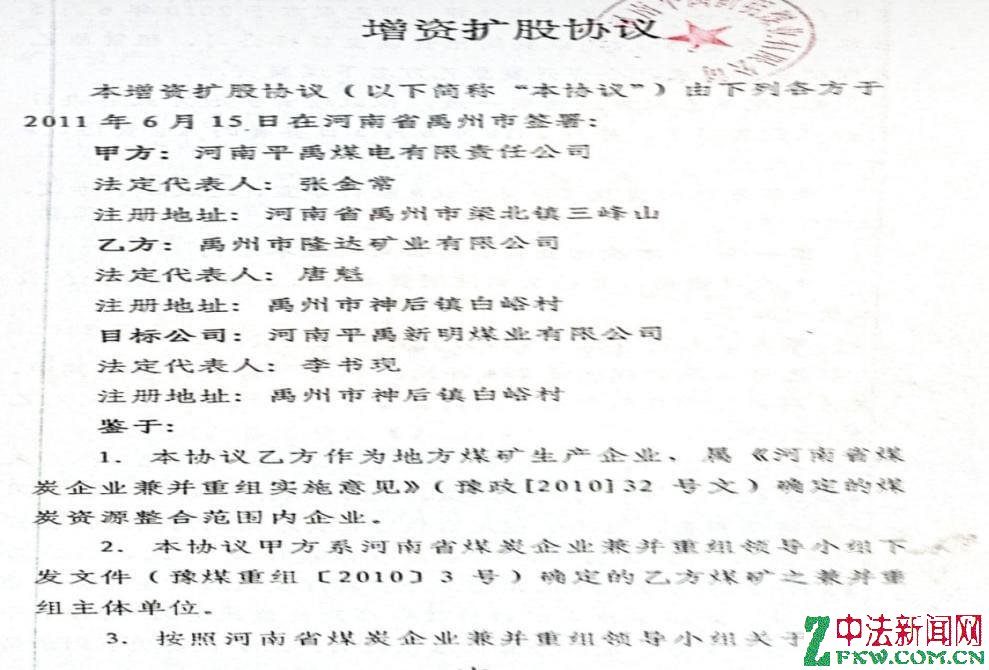 增资扩股协议
本增资扩股协议（以下简称“本协议”）由下列各方于
2011 年 6 月 15 日在河南省禹州市签署：
甲方：河南平禹煤电有限责任公司
法定代表人：张金常
注册地址：河南省禹州市梁北镇三峰山
乙方：禹州市隆达矿业有限公司
法定代表人：唐魁
注册地址：禹州市神后镇白峪村
目标公司：河南平禹新明煤业有限公司
法定代表人：李书现
注册地址：禹州市神后镇白峪村
鉴于：
1. 本协议乙方作为地方煤矿生产企业、属《河南省煤
炭企业兼并重组实施意见》（豫政[2010]32 号文）确定的煤
炭资源整合范围内企业。
2. 本协议甲方系河南省煤炭企业兼并重组领导小组下
发文件（豫煤重组〔2010〕3 号）确定的乙方煤矿之兼并重
组主体单位。
3. 按照河南省煤炭企业兼并重组领导小组关于
中法新闻网
ZFXW.COM.CN